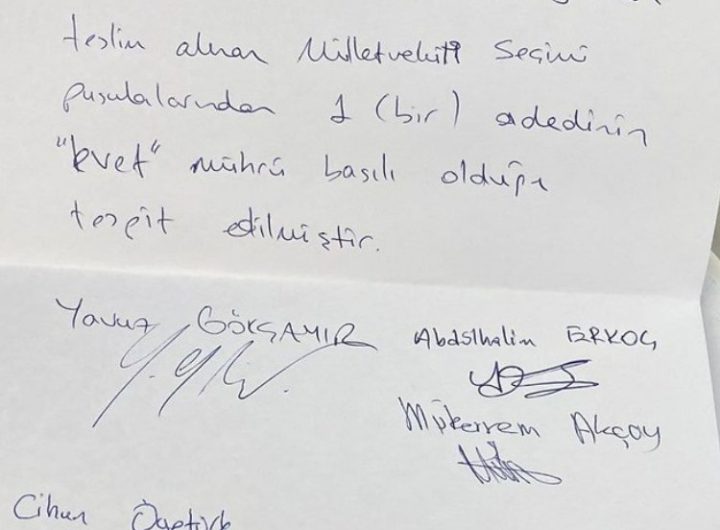 teslim alınan Milletvekili Seçimi
pusulalarından 1 (bir) adedinin
"Evet" mührü basılı olduğu
tespit edilmiştir.
Yavuz GÖKÇAMIR Abdulhalim ERKOÇ
Mükerrem Akçay
Cihan Öz